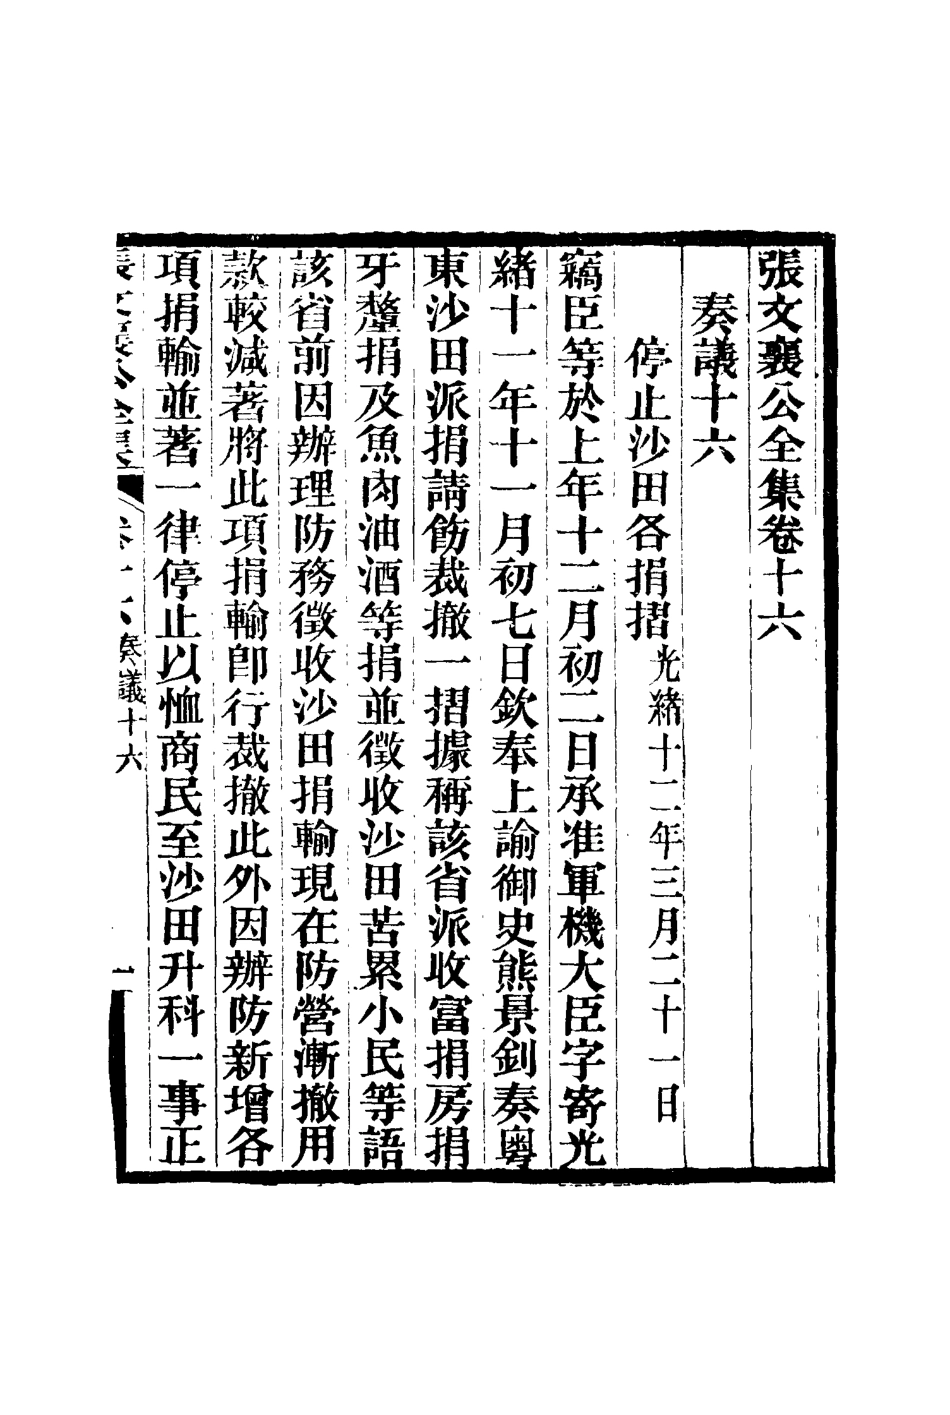 張文襄公全集卷十六
奏議十六
停止沙田各捐摺光緒十二年三月二十一日
竊臣等於上年十二月初二日承准軍機大臣字寄光
緒十一年十一月初七日欽奉上諭御史熊景釗奏粵
東沙田派捐請飭裁撤一摺據稱該省派收富捐房捐
牙釐捐及魚肉油酒等捐並徵收沙田苦累小民等語
該省前因辦理防務徵收沙田捐輸現在防營漸撤用
款較減著將此項捐輸卽行裁撤此外因辦防新增各
項捐輸並著一律停止以恤商民至沙田升科一事正
張文襄公全集 卷十六 奏議十六 一